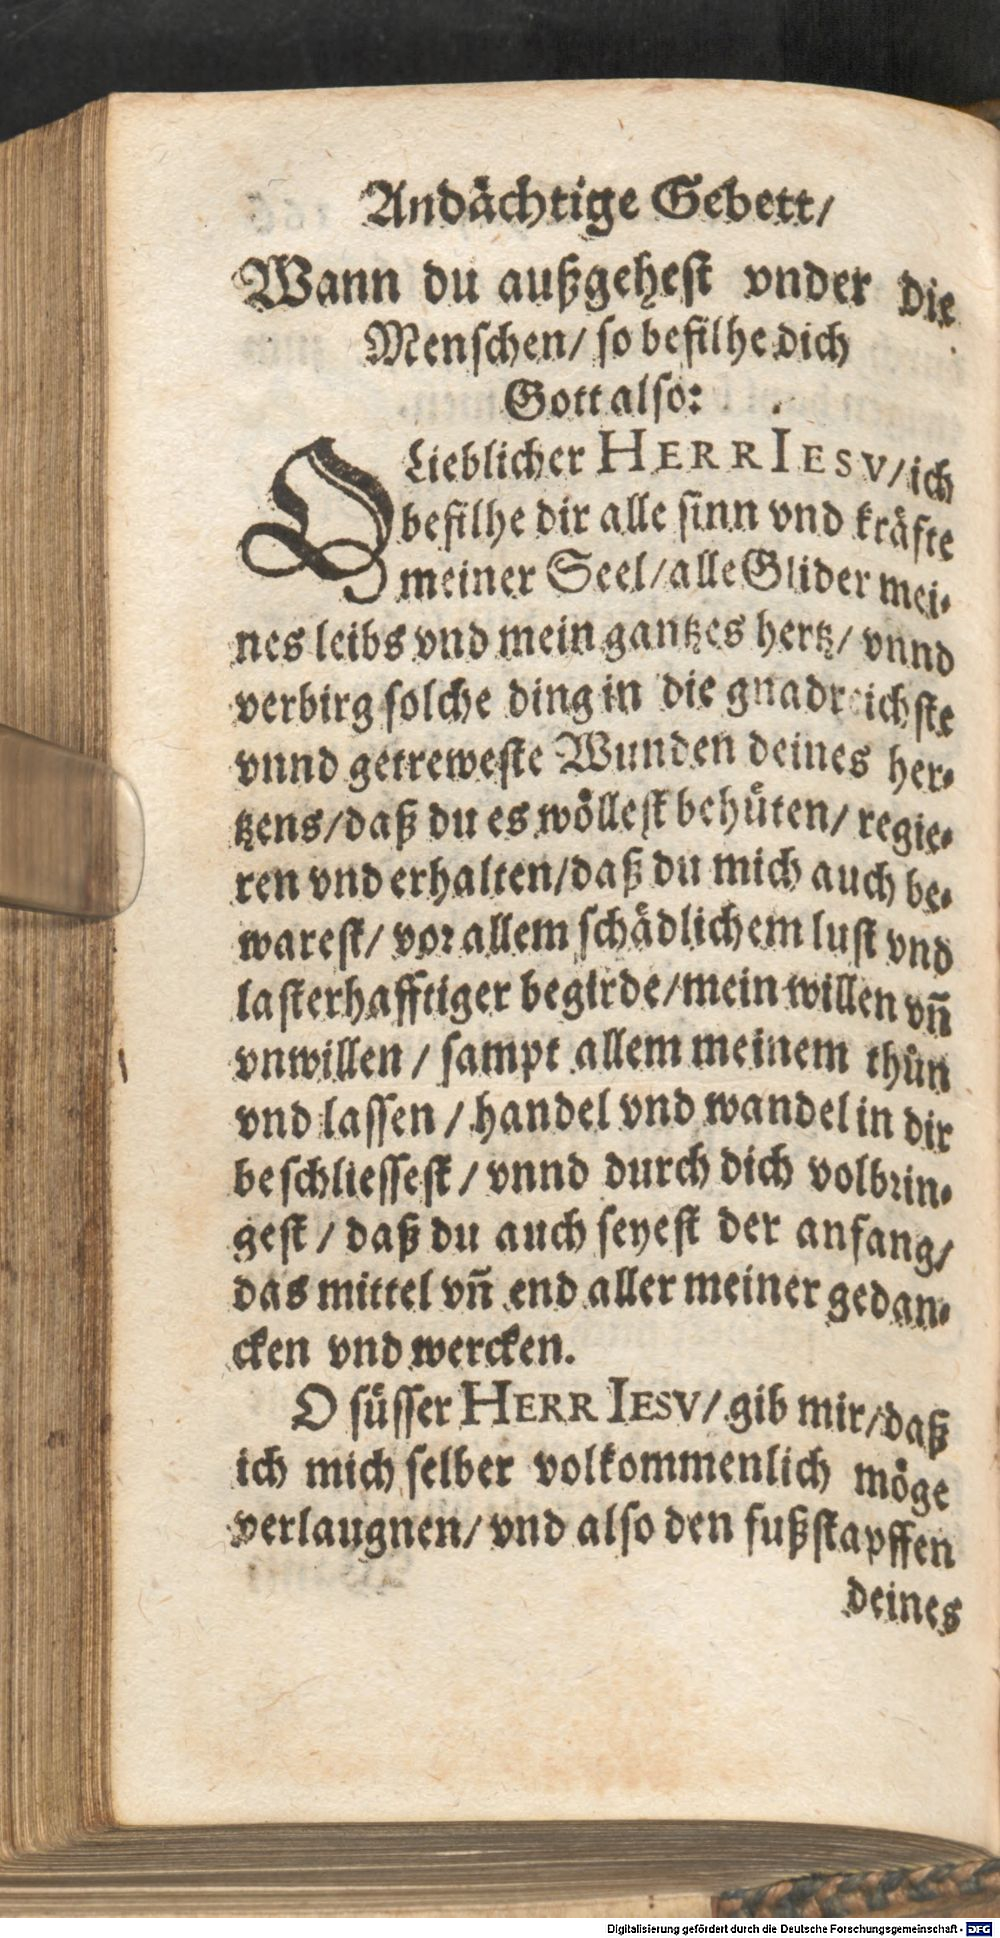 Andächtige Gebett/
Wann du außgehest vnder die
Menschen/ so befilhe dich
Gott also:
O Lieblicher HERR IESV/ ich
befilhe dir alle sinn vnd kräfte
meiner Seel/ alle Glider mei-
nes leibs vnd mein gantzes hertz/ vnnd
verbirg solche ding in die gnadreichste
vnnd getreweste Wunden deines her-
tzens/ daß du es wöllest behüten/ regie-
ren vnd erhalten/ daß du mich auch be-
warest/ vor allem schädlichem lust vnd
lasterhafftiger begirde/ mein willen vñ
vnwillen / sampt allem meinem thůn
vnd lassen / handel vnd wandel in dir
beschliessest / vnnd durch dich volbrin-
gest / daß du auch seyest der anfang/
das mittel vñ end aller meiner gedan-
cken vnd wercken.
O süsser HERR IESV/ gib mir/ daß
ich mich selber volkommenlich möge
verlaugnen/ vnd also den fußstapffen
deines
Digitalisierung gefördert durch die Deutsche Forschungsgemeinschaft - DFG